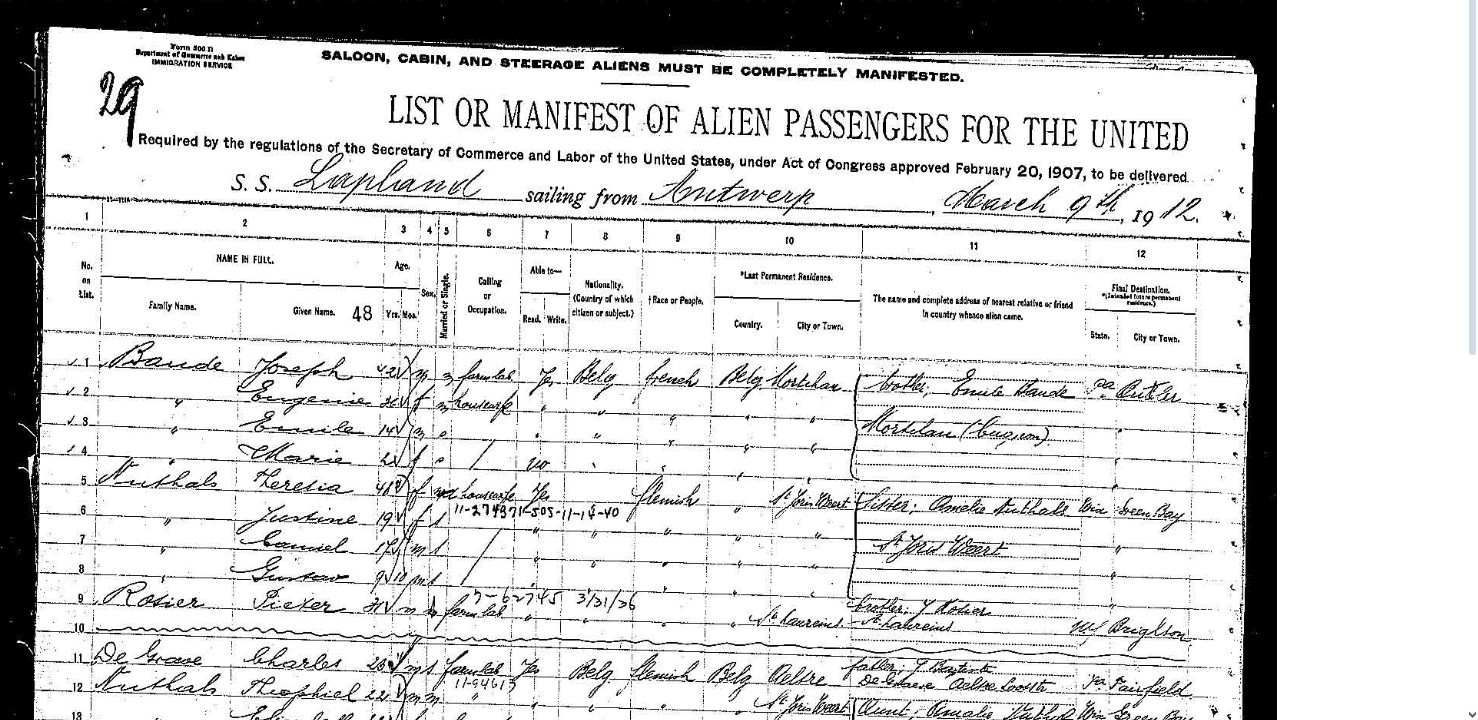 Form 500 B
Department of Commerce and Labor
IMMIGRATION SERVICE
29
SALOON, CABIN, AND STEERAGE ALIENS MUST BE COMPLETELY MANIFESTED.
LIST OR MANIFEST OF ALIEN PASSENGERS FOR THE UNITED
Required by the regulations of the Secretary of Commerce and Labor of the United States, under Act of Congress approved February 20, 1907, to be delivered
S. S. Lapland sailing from Antwerp, March 9th, 1912.
1 2 3 4 5 6 7 8 9 10 11 12
No. on List.
NAME IN FULL.
Family Name. Given Name. 48
Age.
Yrs. Mos.
Sex.
Married or Single.
Calling or Occupation.
Able to—
Read. Write.
Nationality. (Country of which citizen or subject.)
†Race or People.
*Last Permanent Residence.
Country. City or Town.
The name and complete address of nearest relative or friend in country whence alien came.
Final Destination.
State. City or Town.
1 Baude Joseph 42 m m farm lab Yes Belg french Belg Mortehan brother, Emile Baude Pa Butler
2 " Eugenie f m housewife " " " " "
3 " Emile 14 m s " " " " " Mortehan
4 " Marie f s no
5 Nuthals Theresia f housewife Yes flemish " St Joris Weert Sister: Amelie Nuthals Win Green Bay
11-14-40
6 " Justine 19 f s " " "
7 " Camiel m s St Joris Weert "
8 " Gustav 9 10 m s
3/31/36
9 Rosier Pieter m m farm lab " " " " St Laureins brother: Rosier
St Laureins NY Brighton
10
11 De Grave Charles m s farm lab Yes Belg flemish Belg Aeltre father,
De Graeve Aeltre Fairfield
12 Nuthals Theophiel 22 m m " " " " St Joris Weert Aunt, Amelie Nuthals Win Green Bay
13